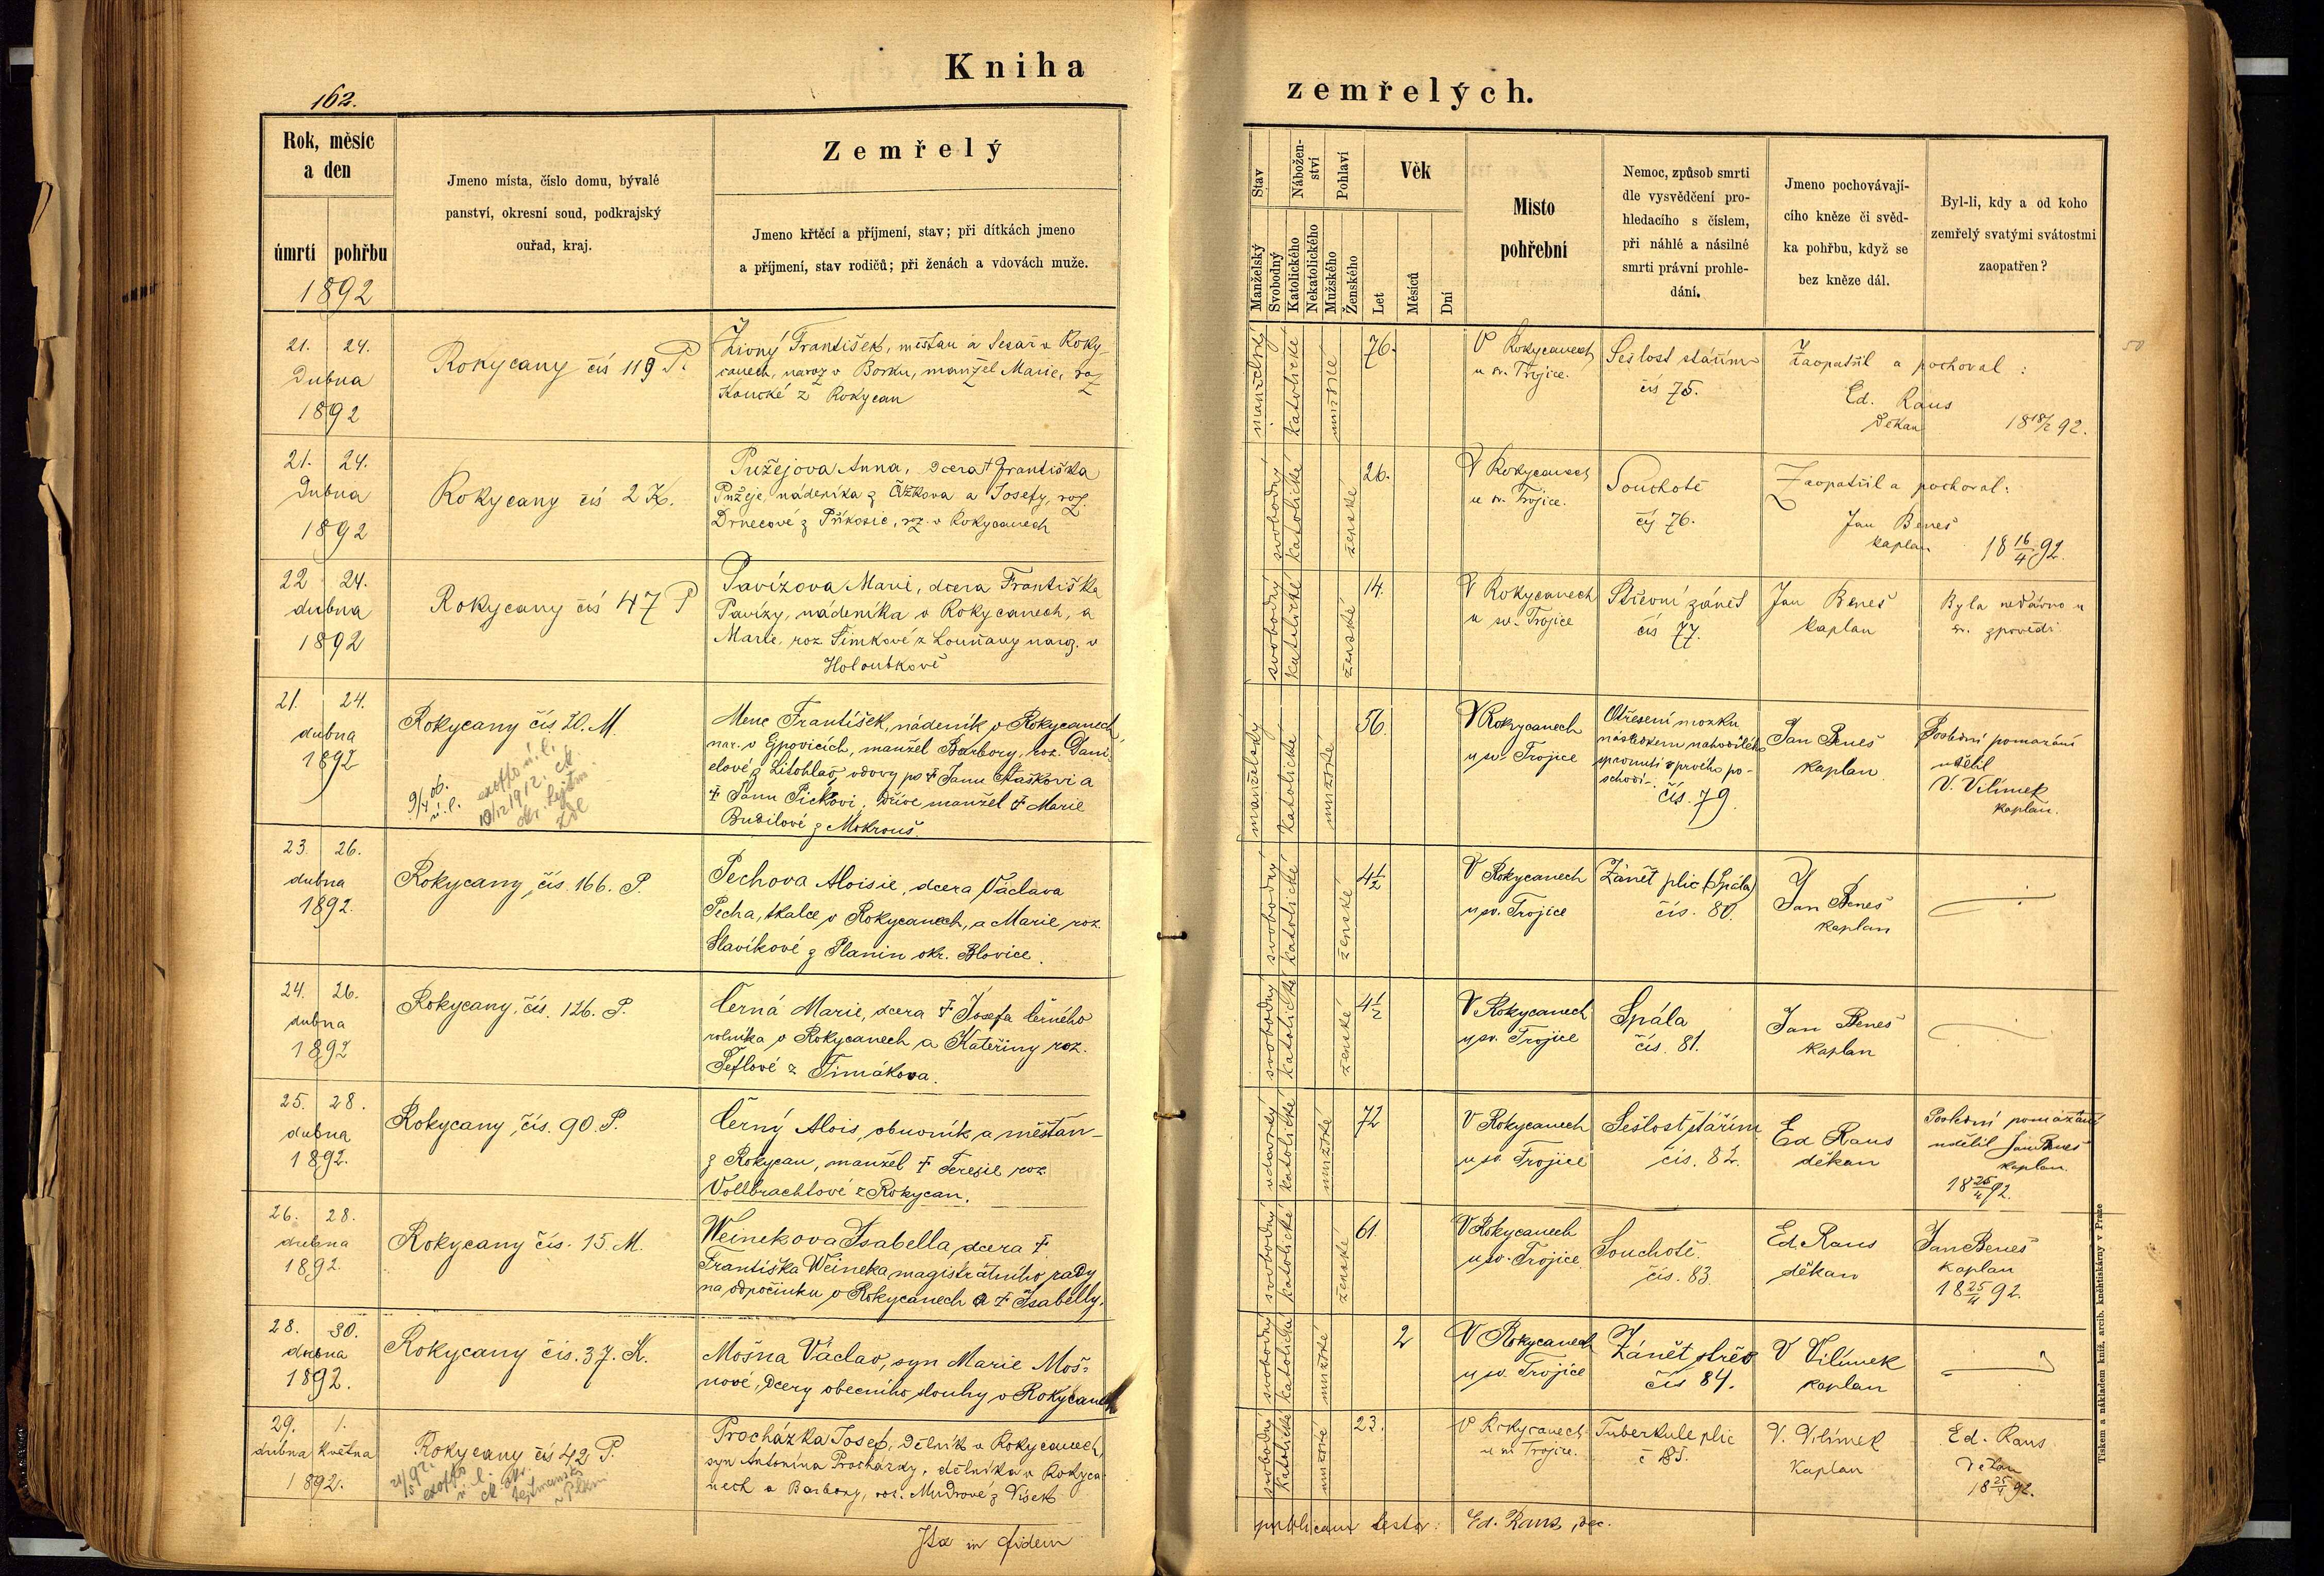 162.
Kniha
zemřelých.
Rok, měsíc
a den
úmrtí pohřbu
1892
Jmeno místa, číslo domu, bývalé
panství, okresní soud, podkrajský
ouřad, kraj.
Zemřelý
Jmeno křtěcí a příjmení, stav; při dítkách jmeno
a příjmení, stav rodičů; při ženách a vdovách muže.
Stav
Manželský
Svobodný
Nábožen-
ství
Katolického
Nekatolického
Pohlaví
Mužského
Ženského
Věk
Let
Měsíců
Dní
Místo
pohřební
Nemoc, způsob smrti
dle vysvědčení pro-
hledacího s číslem,
při náhlé a násilné
smrti právní prohle-
dání.
Jmeno pochovávají-
cího kněze či svěd-
ka pohřbu, když se
bez kněze dál.
Byl-li, kdy a od koho
zemřelý svatými svátostmi
zaopatřen?
21. 24.
Dubna
1892
Rokycany čís 119 P.
Živný František, měšťan a v Roky-
canech, naroz v Borku, manžel Marie, roz
z Rokycan
manželský
katolické
mužské
76.
V Rokycanech
u sv. Trojice.
Sešlost stářím
čís 75.
Zaopatřil a pochoval:
Ed. Raus
Děkan
21. 24.
Dubna
1892
Rokycany čís 2 K.
Pužejova Anna, dcera † Františka
Pužeje, nádeníka z a Josefy, roz.
Drnecové z Příkosic, roz. v Rokycanech
svobodný
katolické
ženské
26.
V Rokycanech
u sv. Trojice.
Souchotě
čís 76.
Zaopatřil a pochoval:
Jan Beneš
kaplan
18 16/4 92.
22 24.
dubna
1892
Rokycany čís 47 P
Pavízova Marie, dcera Františka
Pavízy, nádeníka v Rokycanech, a
Marie, roz. Šimkové z naroz. v
Holoubkově
svobodný
katolické
ženské
14.
V Rokycanech
u sv. Trojice
Střevní zánět
čís 77.
Jan Beneš
kaplan
Byla nedávno u
sv. zpovědi
21. 24.
dubna
1892
Rokycany čís. 20. M.
9/4 06.
ú. l.
exoffo ú. l.
10/12 1912. ck.
okr. hejtm.
Menc František, nádeník v Rokycanech
nar. v Ejpovicích, manžel Barbory, roz. Dani-
elové z Litohlav, vdovy po † Janu Staškovi a
† Janu Pickovi. Dříve manžel † Marie
Budilové z Mokrouš.
manželský
katolické
mužské
56.
V Rokycanech
u sv. Trojice
Otřesení mozku
následkem nahodilého
z prvého po-
schodí
čís. 79
Jan Beneš
kaplan
Poslední pomazání
udělil
V. Vilímek
kaplan.
23. 26.
dubna
1892.
Rokycany, čís. 166. P.
Pechova Aloisie, dcera Václava
Pecha, tkalce v Rokycanech, a Marie, roz.
Slavíkové z Planin okr. Blovice.
svobodný
katolické
ženské
4½
V Rokycanech
u sv. Trojice
Zánět plic (Spála)
čís. 80.
Jan Beneš
kaplan
24. 26.
dubna
1892
Rokycany, čís. 126. P.
Černá Marie, dcera † Josefa Černého
rolníka v Rokycanech a Kateřiny roz.
z Timákova.
svobodný
katolické
ženské
4½
V Rokycanech
u sv. Trojice
Spála
čís. 81.
Jan Beneš
kaplan
25. 28.
dubna
1892.
Rokycany, čís. 90. P.
Černý Alois, obuvník a měšťan
z Rokycan, manžel † Terezie roz.
Vollbrachtové z Rokycan.
vdovský
katolické
mužské
72
V Rokycanech
u sv. Trojice
Sešlost stářím
čís. 82.
Ed Raus
děkan
Poslední pomazání
udělil Jan Beneš
kaplan.
18 25/4 92.
26. 28.
dubna
1892.
Rokycany čís. 15. M.
Weinekova Isabella, dcera †
Františka Weineka magistrátního rady
na odpočinku v Rokycanech a † Isabelly.
svobodný
katolické
ženské
61.
V Rokycanech
u sv. Trojice.
Souchotě.
čís. 83.
Ed. Raus
děkan
Jan Beneš
kaplan
18 25/4 92.
28. 30.
dubna
1892.
Rokycany čís. 37. K.
Mošna Václav, syn Marie Moš-
nové, dcery obecního slouhy v Rokycanech
svobodný
katolické
mužské
2
V Rokycanech
u sv. Trojice
Zánět střev
čís 84.
V Vilímek
kaplan
29. 1.
dubna května
1892.
Rokycany čís 42 P.
exoffo
ú. l.
ck. okr.
hejtmanství
v Plzni
Procházka Josef, dělník v Rokycanech,
syn Antonína Procházky, dělníka v Rokyca-
nech a Barbory, roz. Mudrové z Vísek
svobodný
katolické
mužské
23.
V Rokycanech
u sv Trojice.
Tuberkule plic
č 85.
V. Vilímek
kaplan
Ed. Raus
Děkan
18 25/4 92.
Ita in fidem
publicam testor: Ed. Raus, dec.
50
Tiskem a nákladem kníž. arcib. knihtiskárny v Praze